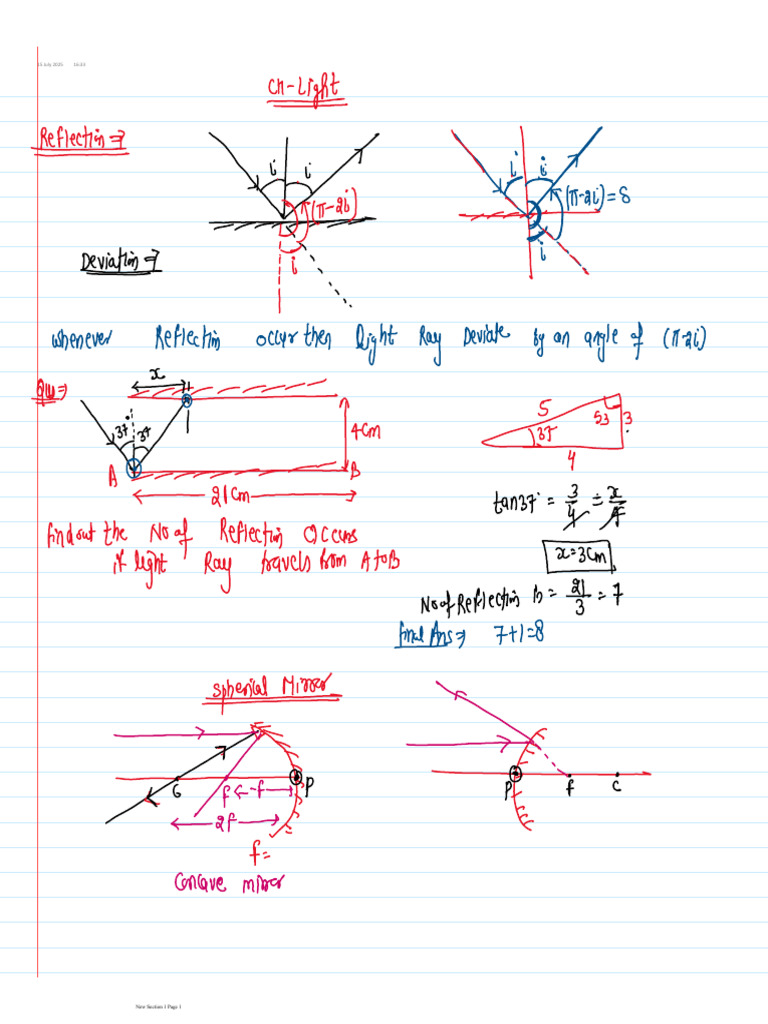 15 July 2025 16:33
CH-Light
Reflection ⇒
i i
(π-2i)
i
i i
(π-2i) = δ
i
Deviation ⇒
whenever Reflectin occur then light Ray Deviate by an angle of (π-2i)
Que ⇒
x
37° 37
4cm
A B
21cm
5 53 3
37
4
tan37° = 3/4 = x/4
x = 3cm
No of Reflectin n = 21/3 = 7
final Ans ⇒ 7+1=8
find out the No of Reflectin Occurs
if light Ray travels from A to B
Spherical Mirror
C f -f P
2f
f=
Concave mirror
P f C
New Section 1 Page 1